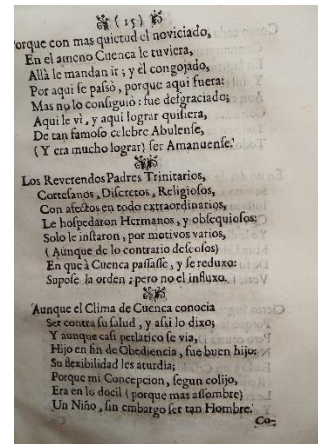 (15)
Porque con mas quietud el noviciado,
En el ameno Cuenca le tuviera,
Allà le mandan ir; y èl congojado,
Por aqui se passò, porque aqui fuera:
Mas no lo consiguiò: fue desgraciado;
Aqui le vì, y aqui lograr quisiera,
De tan famoso celebre Abulense,
(Y era mucho lograr) ser Amanuense.
Los Reverendos Padres Trinitarios,
Cortesanos, Discretos, Religiosos,
Con afectos en todo extraordinarios,
Le hospedaron Hermanos, y obsequiosos:
Solo le instaron, por motivos varios,
(Aunque de lo contrario deseosos)
En que à Cuenca passasse, y se reduxo:
Supose la orden; pero no el influxo.
Aunque el Clima de Cuenca conocia
Ser contra su salud, y assi lo dixo;
Y aunque casi perlatico se via,
Hijo en fin de Obediencia, fue buen hijo:
Su flexibilidad les aturdia;
Porque mi Concepcion, segun colijo,
Era en lo docil (porque mas assombre)
Un Niño, sin embargo ser tan Hombre.
Co-